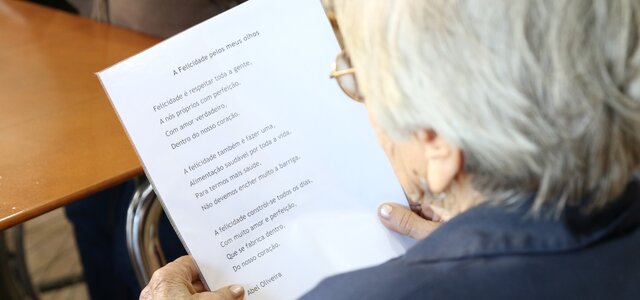 A Felicidade pelos meus olhos
Felicidade é respeitar toda a gente,
A nós próprios com perfeição,
Com amor verdadeiro,
Dentro do nosso coração.
A felicidade também é fazer uma,
Alimentação saudável por toda a vida.
Para termos mais saúde,
Não devemos encher muito a barriga.
A felicidade constrói-se todos os dias,
Com muito amor e perfeição,
Que se fabrica dentro,
Do nosso coração.
Abel Oliveira